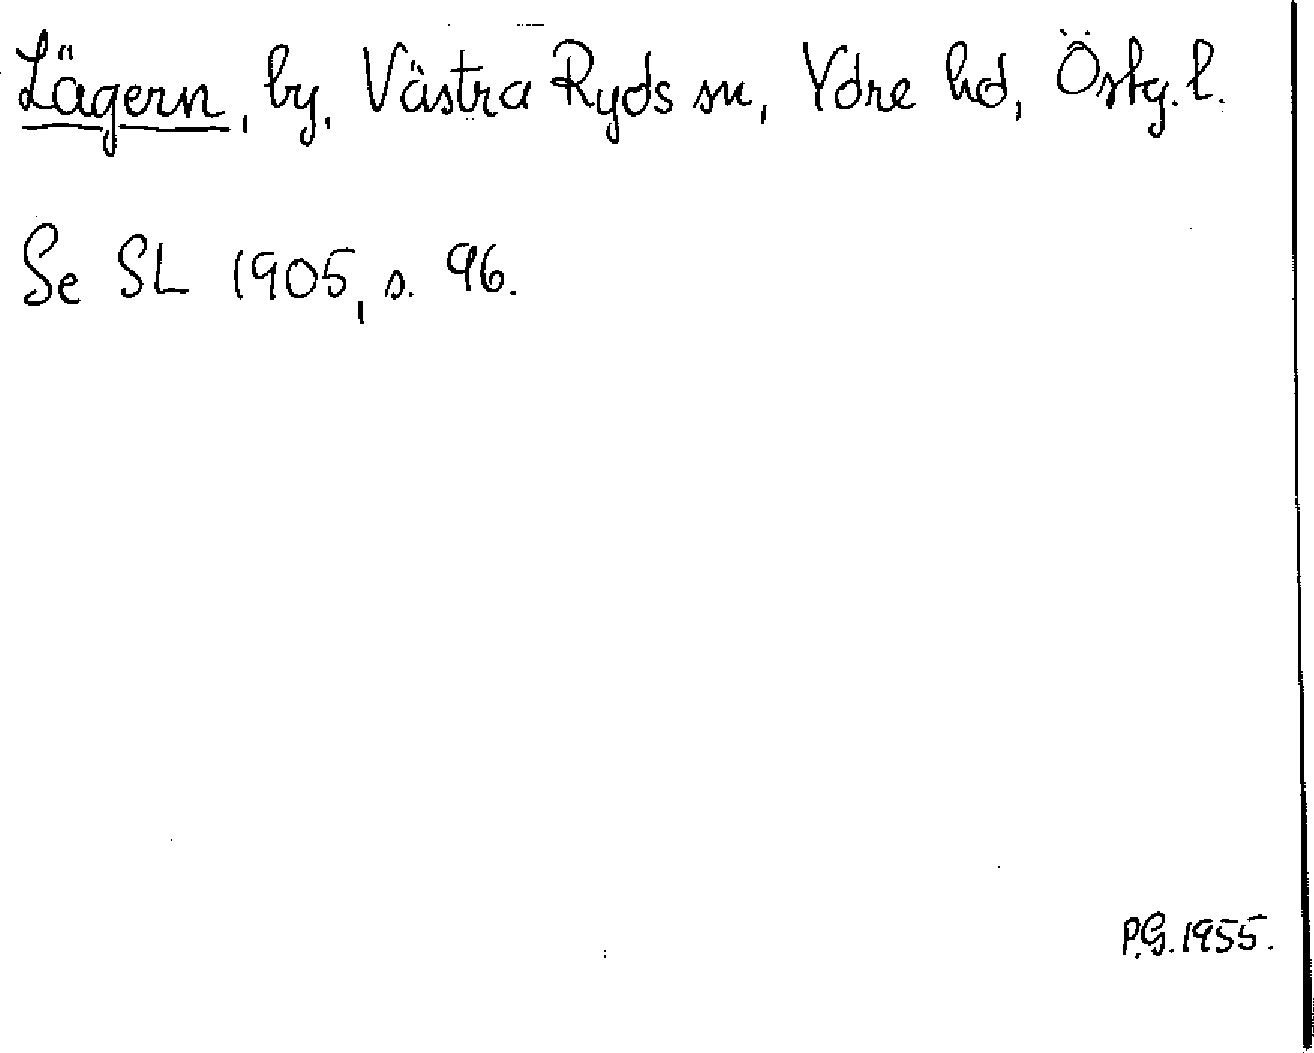 Lägern, by, Västra Ryds sn, Ydre hd, Östg. l.
Se SL 1905, s. 96.
P.G. 1955.